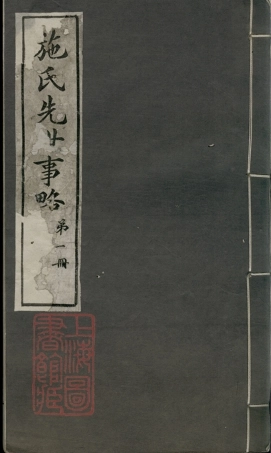 施氏先世事略
第一冊
上海圖
書館藏